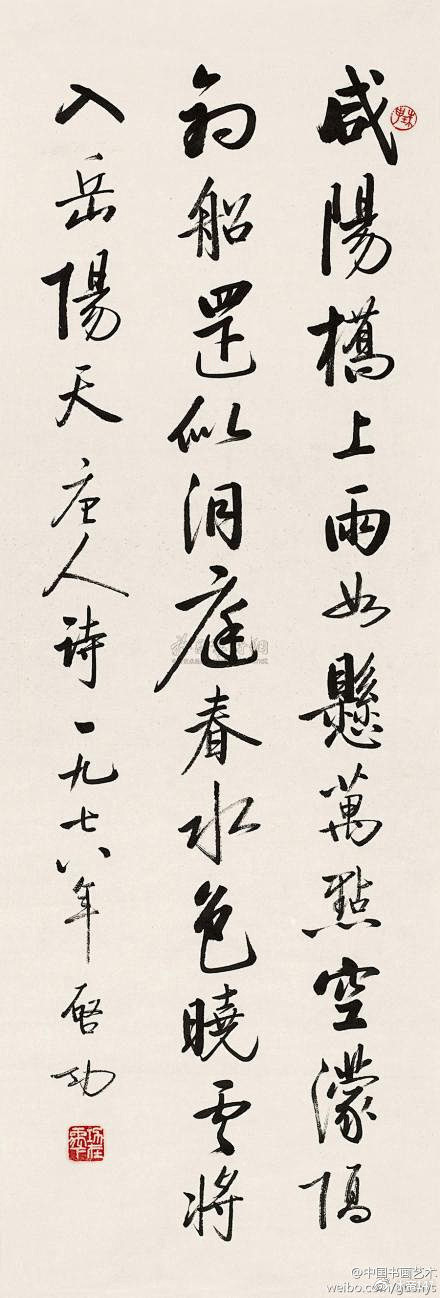 咸陽橋上雨如懸萬點空濛隔
釣船還似洞庭春水色曉雲將
入岳陽天唐人詩一九七八年啓功
@中国书画艺术